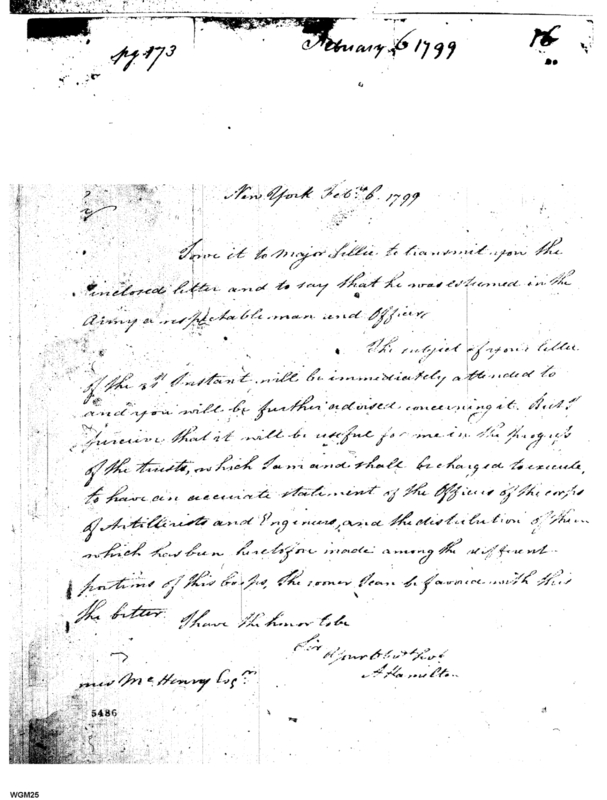 pg. 173 February 6 1799 16
New York Feb.ry 6. 1799
I owe it to Major Lillie to transmit you the
inclosed letter and to say that he was esteemed in the
Army a respectable man and Officer,
The subject of your letter
of the Instant will be immediately attended to
and you will be further advised concerning it. But I
perceive that it will be useful for me in the progress
of the trusts, which I am and shall be charged to execute,
to have an accurate statement of the Officers of the corps
of Artillerists and Engineers, and the distribution of them
which has been heretofore made among the different
portions of this Corps, The sooner I can be favored with this
the better.
I have the honor to be
Sir
Your Obedt Servt
A Hamilton
mes McHenry Esqr
5486
WGM25